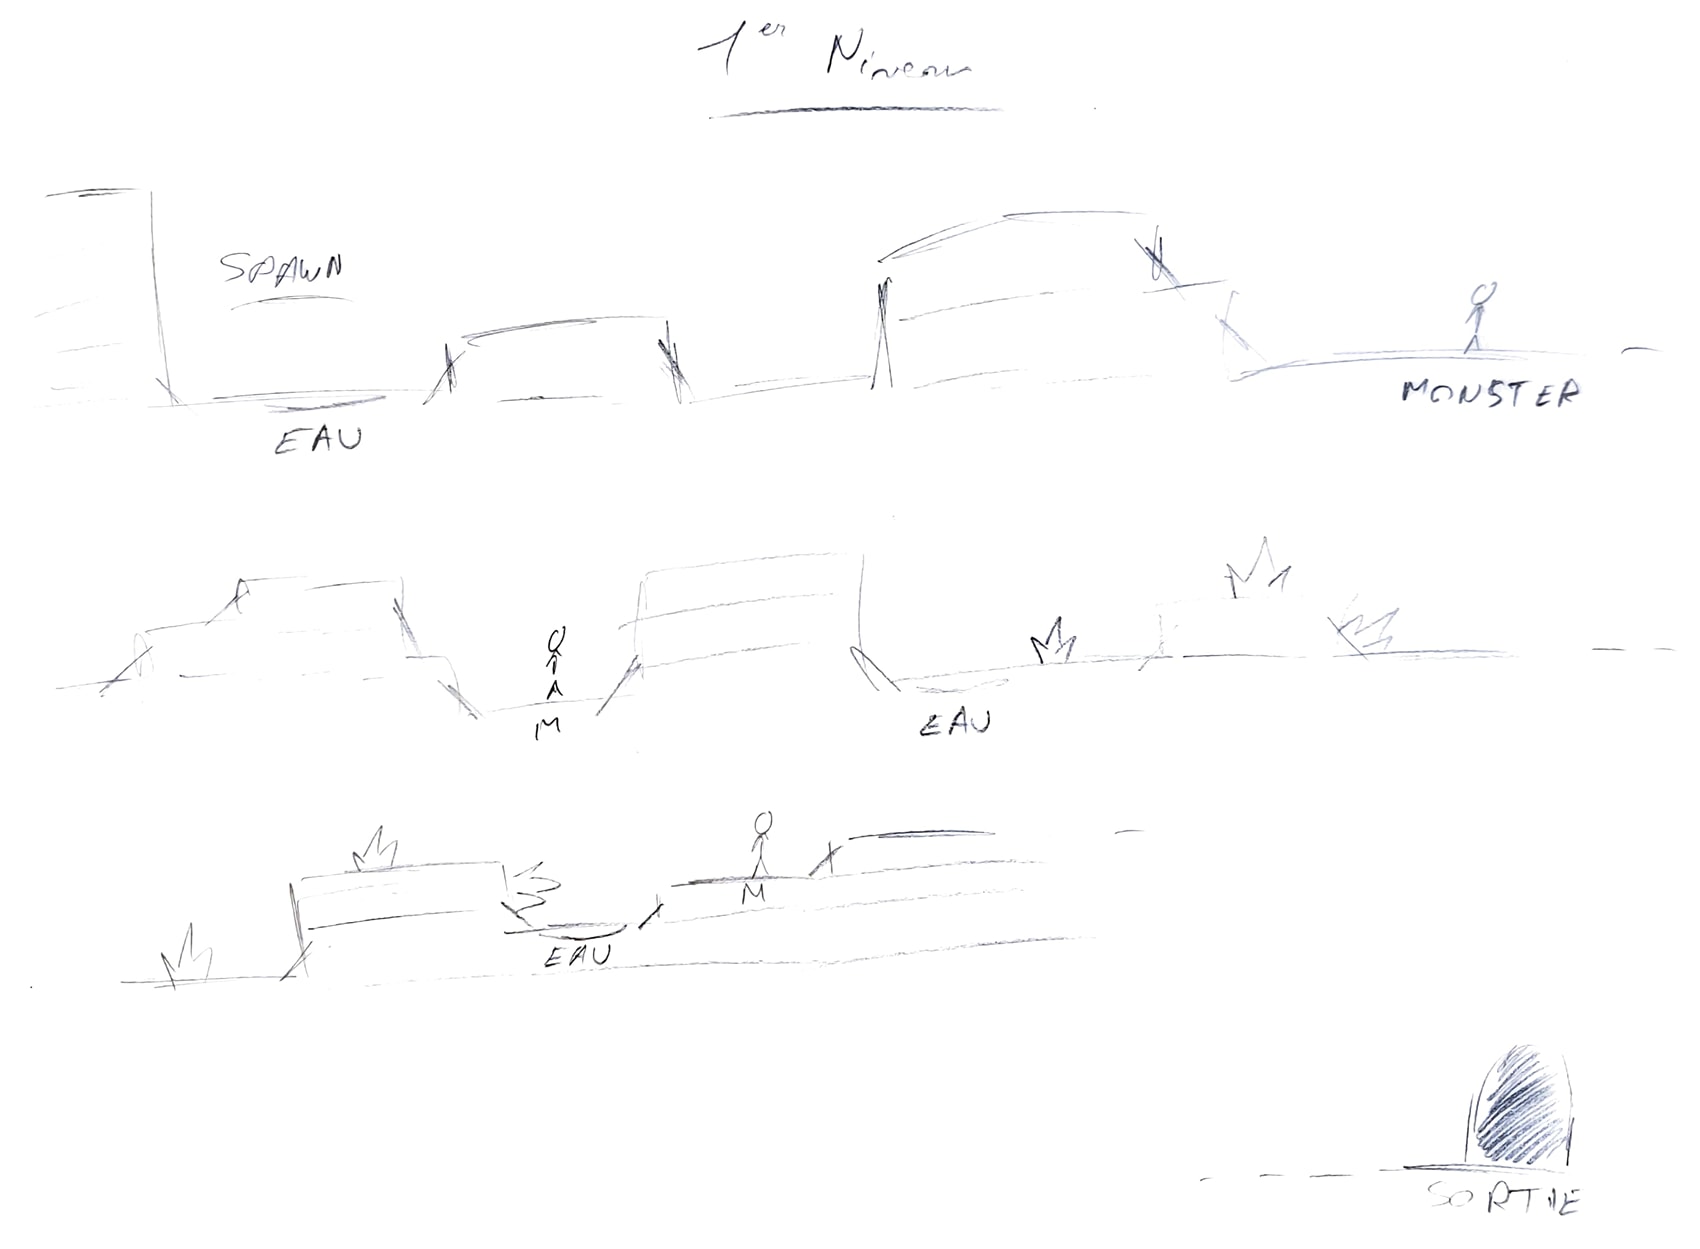 1er Niveau
SPAWN
EAU
MONSTER
M
EAU
M
EAU
SORTIE